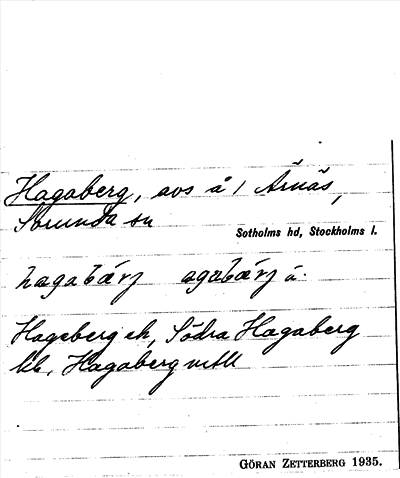 Hagaberg, avs å 1 Årnäs,
Sorunda sn
Sotholms hd, Stockholms l.
hagabärj agabärj
Hagaberg ek, Södra Hagaberg
kb, Hagaberg
GÖRAN ZETTERBERG 1935.